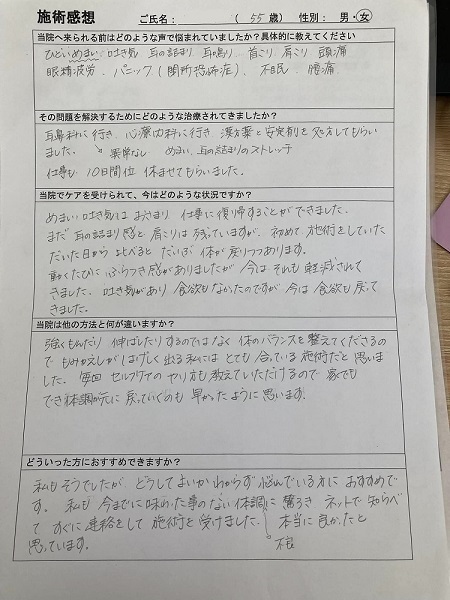 施術感想 ご氏名： （ 55 歳） 性別： 男・女
当院へ来られる前はどのような声で悩まれていましたか？具体的に教えてください
ひどいめまい 吐き気 耳の詰まり 耳鳴り 首こり 肩こり 頭痛
眼精疲労、パニック（閉所恐怖症）、不眠、腰痛
その問題を解決するためにどのような治療されてきましたか？
耳鼻科に行き、心療内科に行き 漢方薬と安定剤を処方してもらい
ました。 異常なし めまい、耳の詰まりのストレッチ
仕事も 10日間位 休ませてもらいました。
当院でケアを受けられて、今はどのような状況ですか？
めまい 吐き気は おさまり 仕事に復帰することができました。
まだ 耳の詰まり感と 肩こりは 残っていますが、初めて 施術をしていた
だいた日から 比べると だいぶ 体が戻りつつあります。
動くたびに ふらつき感がありましたが 今は それも 軽減されて
きました。吐き気があり 食欲もなかったのですが 今は 食欲も 戻って
きました。
当院は他の方法と何が違いますか？
強くもんだり 伸ばしたりするのではなく 体のバランスを整えてくださるの
で もみかえしが はげしく出る私には とても 合っている 施術だと 思いま
した。毎回 セルフケアの やり方も 教えていただけるので 家でも
でき体調が元に 戻っていくのも 早かったように思います。
どういった方におすすめできますか？
私もそうでしたが、どうしてよいかわからず 悩んでいる方に おすすめで
す。私も 今までに味わった事のない体調に 驚ろき ネットで 知らべ
て すぐに 連絡をして 施術を 受けました。 本当に 良かったと
思っています。 不良